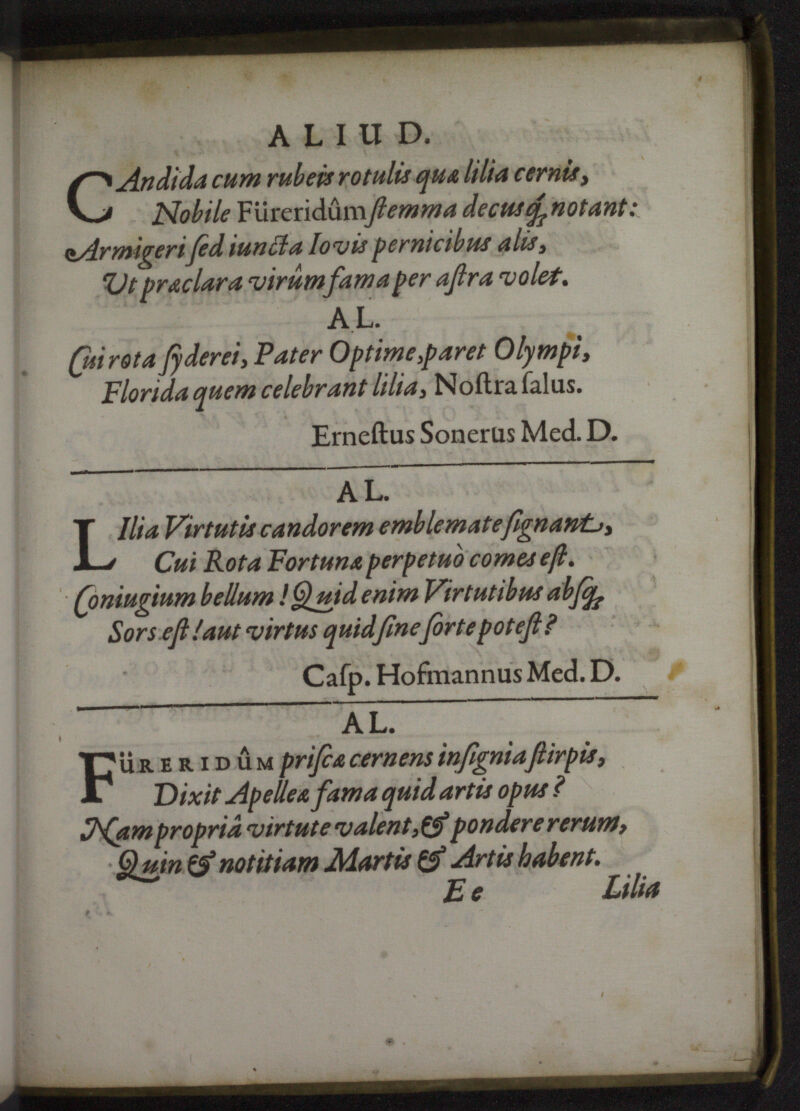 ALIUD.
CAndida cum rubeis rotulis quæ lilia cernis,
Nobile Füreridûm ſtemma decusq́; notant:
Armigeri ſed iuncta Iovis pernicibus alis,
Ut præclara virûm fama per aſtra volet.
AL.
Cui rota ſyderei, Pater Optime, paret Olympi,
Florida quem celebrant lilia, Noſtra ſalus.
Erneſtus Sonerus Med. D.
AL.
LIlia Virtutis candorem emblemate ſignant,
Cui Rota Fortunæ perpetuò comes eſt.
Coniugium bellum! Quid enim Virtutibus abſq;
Sors eſt! aut virtus quid ſine ſorte poteſt?
Caſp. Hofmannus Med. D.
AL.
FÜRERIDÛM priſcæ cernens inſignia ſtirpis,
Dixit Apelleæ fama quid artis opus?
Nam propriâ virtute valent, & pondere rerum,
Quin & notitiam Martis & Artis habent.
Ee Lilia